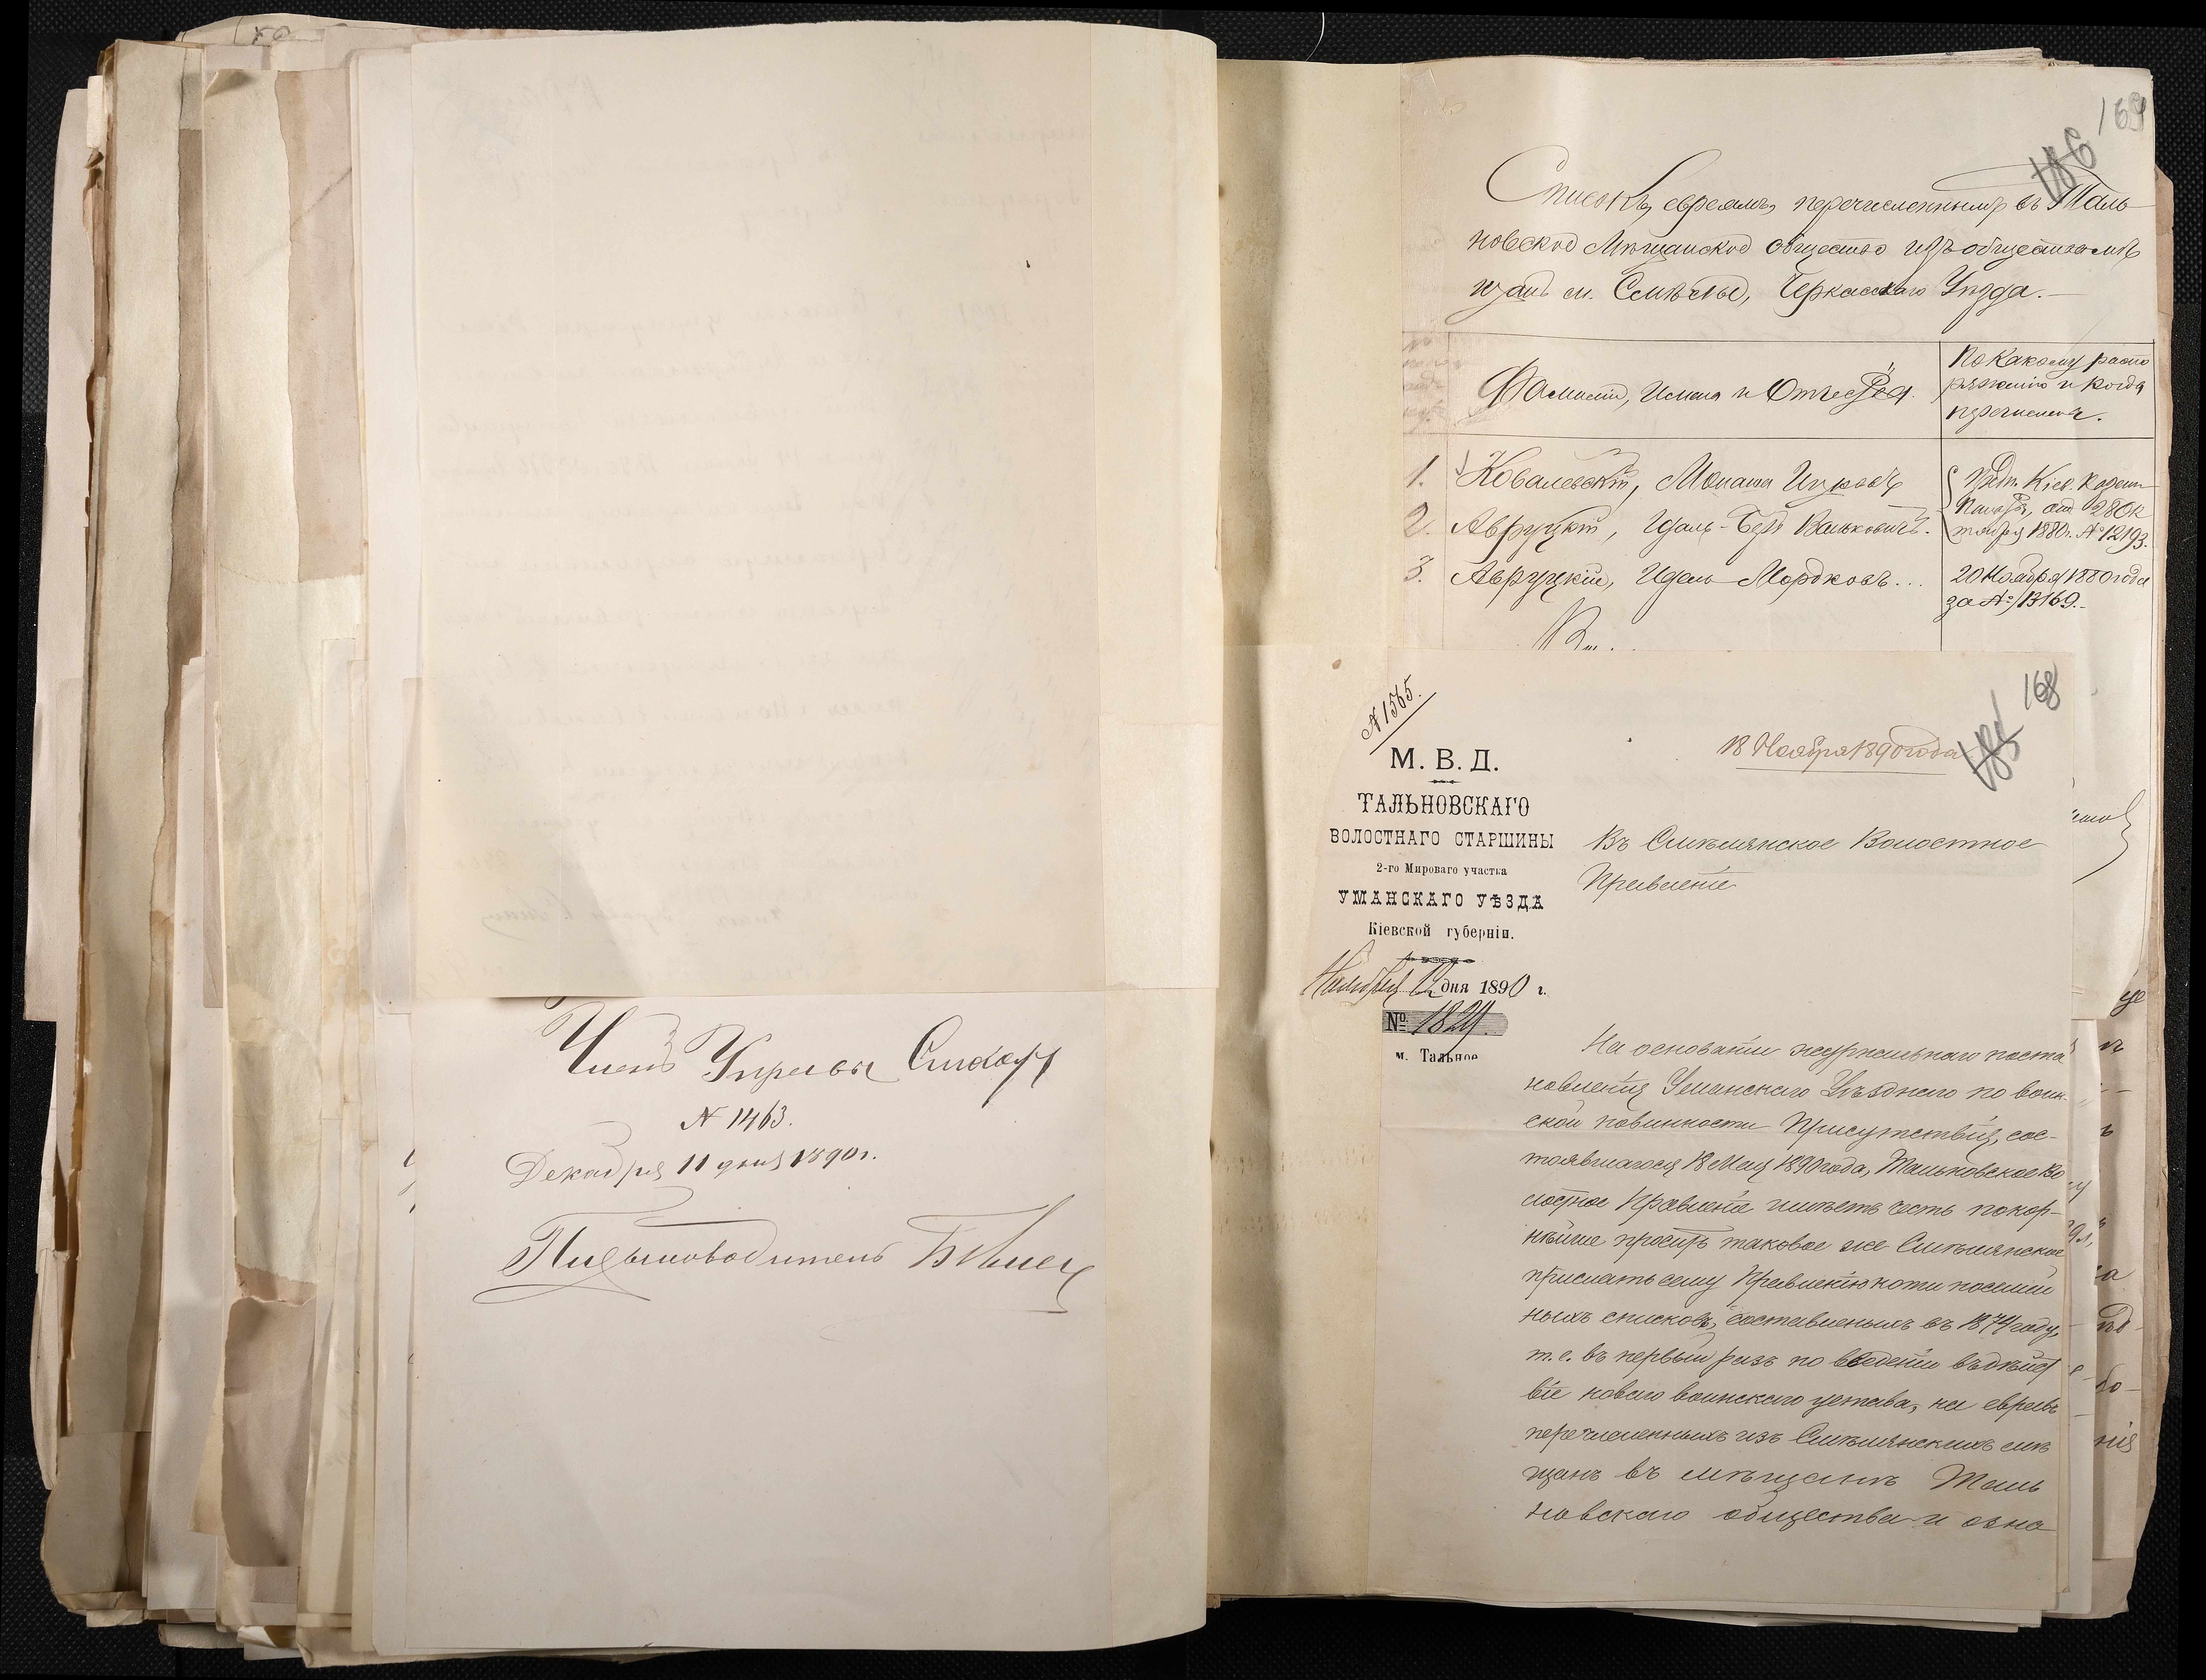 Членъ Управы
№ 1463.
Декабря 11 дня 1890 г.
Письмоводитель
169
186
Списокъ евреямъ, перечисленнымъ въ Таль-
новское Мѣщанское общество изъ общества мѣ
щанъ м. Смѣлы, Черкасскаго Уѣзда.—
Фамилія, Имена и Отчества.
По какому распо
ряженію и когда
перечислены.
1. Ковалевскій, Монаша Ицковъ
2. Авруцкій, Идель-Беръ Вольковичъ.
3. Авруцкій, Идель Мордковъ...
Предп. Кіев. Казен.
Палаты, отъ 28 Ок
тября 1880 г. № 12193.
20 Ноября 1880 года
за № 13169.—
№ 1565.
168
185
18 Ноября 1890 года
М. В. Д.
ТАЛЬНОВСКАГО
ВОЛОСТНАГО СТАРШИНЫ
2-го Мироваго участка
УМАНСКАГО УѢЗДА
Кіевской губерніи.
Ноября 12 дня 1890 г.
№ 1829.
м. Тальное
Въ Смѣлянское Волостное
Правленіе
На основаніи журнальнаго поста
новленія Уманскаго Уѣзднаго по воин-
ской повинности Присутствія, сос-
тоявшагося 18 Мая 1890 года, Тальновское Во
лостное Правленіе имѣетъ честь покор-
нѣйше просить таковое же Смѣлянское
прислать сему Правленію копіи посемей
ныхъ списковъ, составленыхъ въ 1874 году,
т. е. въ первый разъ по введеніи въ дѣйст
віе новаго воинскаго устава, на евреевъ
перечисленныхъ изъ Смѣлянскихъ мѣ
щанъ въ мѣщане Таль
новскаго общества и озна